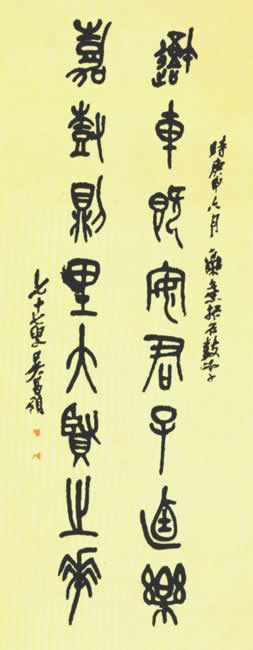 時庚申六月石鼓字
車既安君子逌樂
嘉樹則里大賢之華
七十七叟吳昌碩